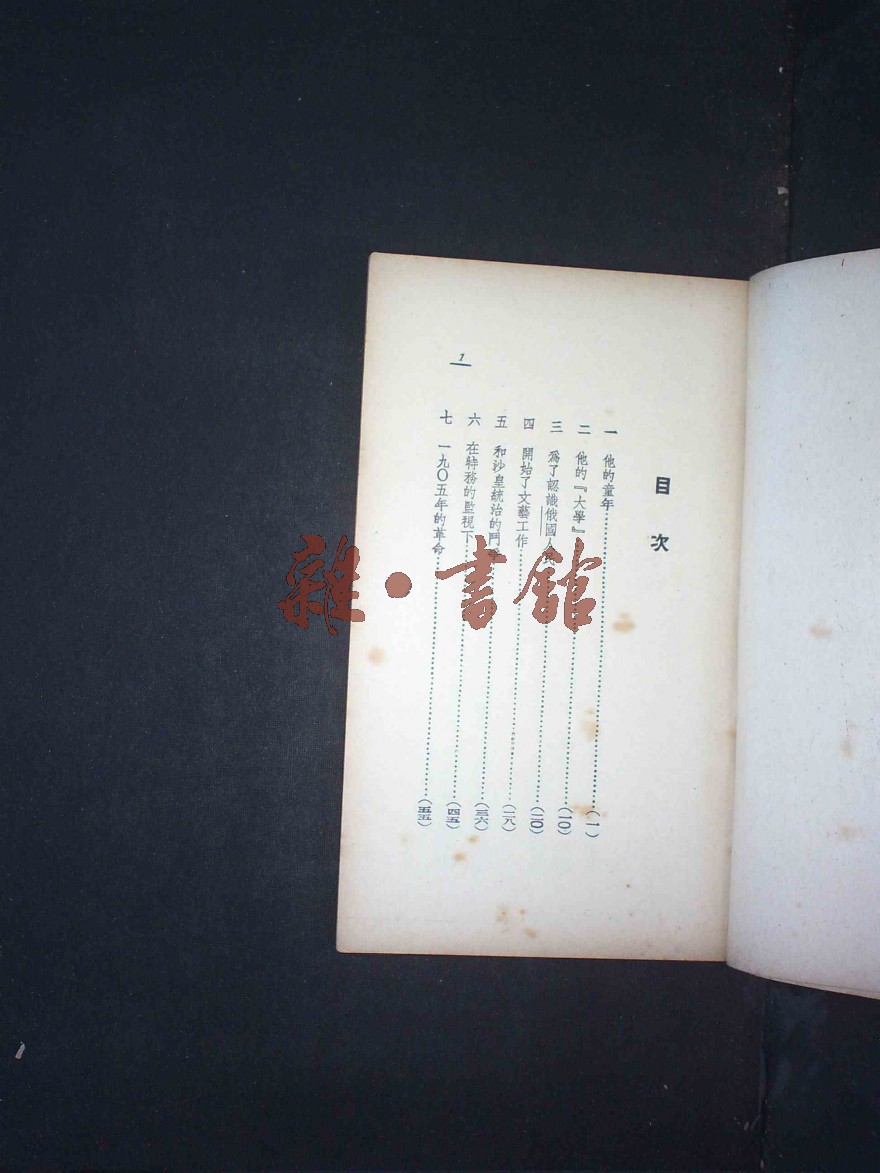 目次
一 他的童年……(一)
二 他的『大學』……(一〇)
三 爲了認識俄國人……(二〇)
四 開始了文藝工作……(二八)
五 和沙皇統治的鬥爭……(三六)
六 在特務的監視下……(四五)
七 一九〇五年的革命……(五五)
1
雜·書館